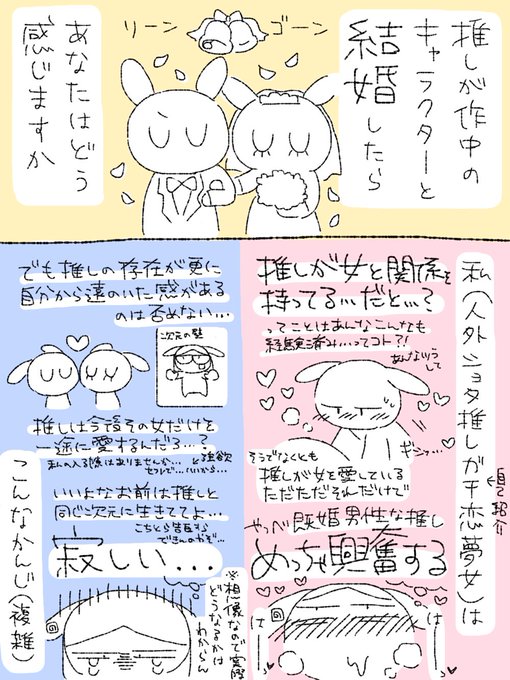 推しが作中の
キャラクターと
結婚したら
リーン
ゴーン
あなたはどう
感じますか
私(人外ショタ推しガチ恋夢女)は
自己紹介
推しが女と関係を
持ってる…だと…?
ってことはあんなこんなも
経験済み…ってコト?!
あんなツラ
して
ギシッ…
そうでなくとも
推しが女を愛している
ただただそれだけで
やっべ既婚男性な推し
めっちゃ興奮する
はーっ
はーっ
でも推しの存在が更に
自分から遠のいた感がある
のは否めない…
次元の壁
推しは今後その女だけを
一途に愛するんだろ…?
私の入る隙はありませんか…
いいよなお前は推しと
同じ次元に生きててよ…
寂しい…
※想像なので実際
どうなるかは
わからん
こんなかんじ(複雑)